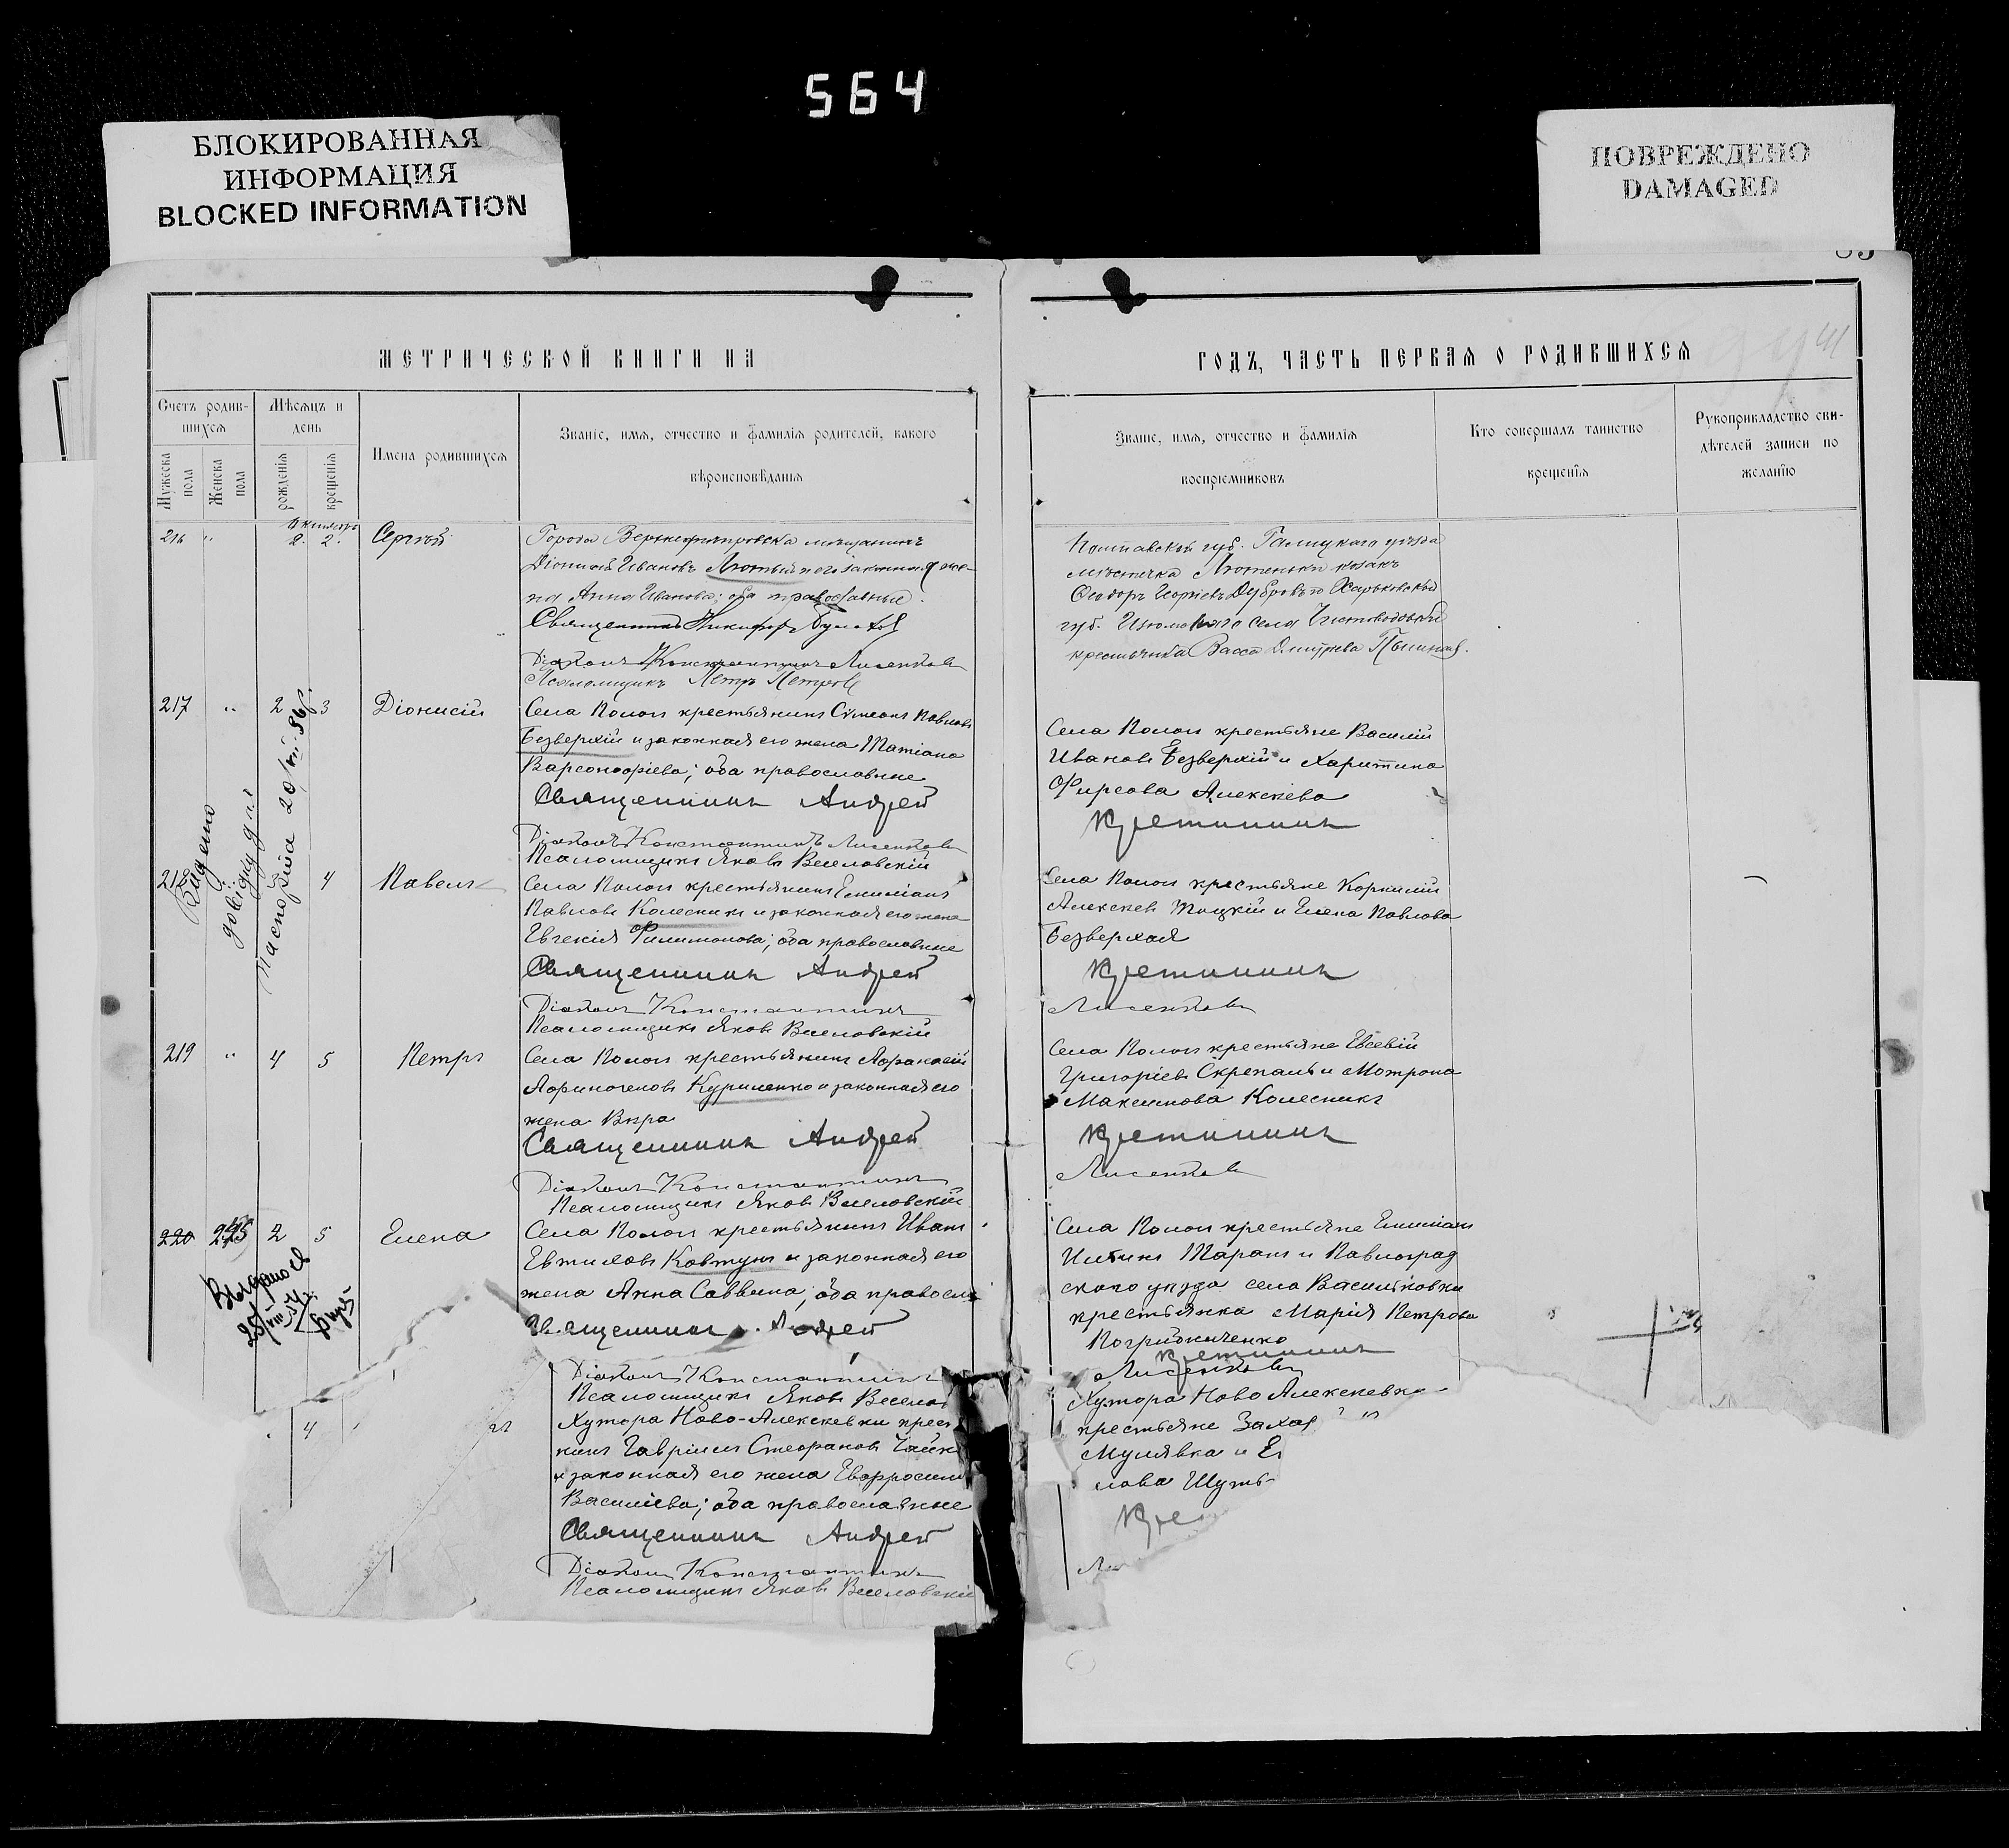 564
БЛОКИРОВАННАЯ
ИНФОРМАЦИЯ
BLOCKED INFORMATION
ПОВРЕЖДЕНО
DAMAGED
МЕТРИЧЕСКОЙ КНИГИ НА
ГОДЪ, ЧАСТЬ ПЕРВАЯ О РОДИВШИХСЯ
Счетъ родив-
шихся
Мужеска пола
Женска пола
Мѣсяцъ и
день
рожденія
крещенія
Имена родившихся
Званіе, имя, отчество и фамилія родителей, какого
вѣроисповѣданія
Званіе, имя, отчество и фамилія
воспріемниковъ
Кто совершалъ таинство
крещенія
Рукоприкладство сви-
дѣтелей записи по
желанію
216 " 2. 2. Сергѣй
Города Верхнеднѣпровска мѣщанинъ
Діонисій Ивановъ Лютый и его законная же-
на Анна Иванова; оба православные.
Священникъ Никифоръ
Діаконъ Константинъ Лисенковъ
Псаломщикъ Петръ Петровъ
Полтавской губ. Гадяцкаго уѣзда
мѣстечка Лютеньки козакъ
Ѳеодоръ Георгіевъ Дубровъ и Харьковской
губ. Изюмскаго села
крестьянка Васса Дмитріева
217 " 2 3 Діонисій
Села Пологъ крестьянинъ Сѵмеонъ Павловъ
Безверхій и законная его жена Татіана
Варсонофіева; оба православные
Священникъ Андрей
Діаконъ Константинъ Лисенковъ
Псаломщикъ Яковъ Веселовскій
Села Пологъ крестьяне Василій
Ивановъ Безверхій и Харитина
Фирсова Алексѣева
Кретининъ
Видано
довідку для
паспорта 20/VII-36
218 4 Павелъ
Села Пологъ крестьянинъ Емиліанъ
Павловъ Колесникъ и законная его жена
Евгенія Филимонова; оба православные
Священникъ Андрей
Діаконъ Константинъ
Псаломщикъ Яковъ Веселовскій
Села Пологъ крестьяне Корнилій
Алексѣевъ Тоцкій и Елена Павлова
Безверхая
Кретининъ
Лисенковъ
219 " 4 5 Петръ
Села Пологъ крестьянинъ Аѳанасій
Куриленко и законная его
жена Вѣра
Священникъ Андрей
Діаконъ Константинъ
Псаломщикъ Яковъ Веселовскій
Села Пологъ крестьяне Евсевій
Григоріевъ Скрепаль и Мотрона
Максимова Колесникъ
Кретининъ
Лисенковъ
220 2 5 Елена
Села Пологъ крестьянинъ Иванъ
Ковтунъ и законная его
жена Анна Саввина; оба правосла
Священникъ Андрей
Діаконъ Константинъ
Псаломщикъ Яковъ Веселов
Села Пологъ крестьяне Емиліанъ
Таранъ и Павлоград
скаго уѣзда села Васильковки
крестьянка Марія Петрова
Погрибниченко
Кретининъ
Лисенковъ
4
Хутора Ново-Алексѣевки крест
нинъ Гавріилъ Стефановъ Чайк
и законная его жена Евфросин
Василіева; оба православные
Священникъ Андрей
Діаконъ Константинъ
Псаломщикъ Яковъ Веселовскій
Хутора Ново Алексѣевк
крестьяне Захар
Мулявка и Е
лова Шуть
Крет